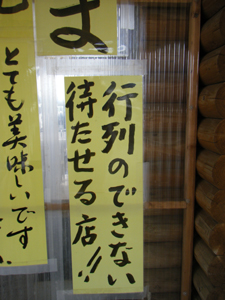 行列のできない
待たせる店!!
とても美味しいです